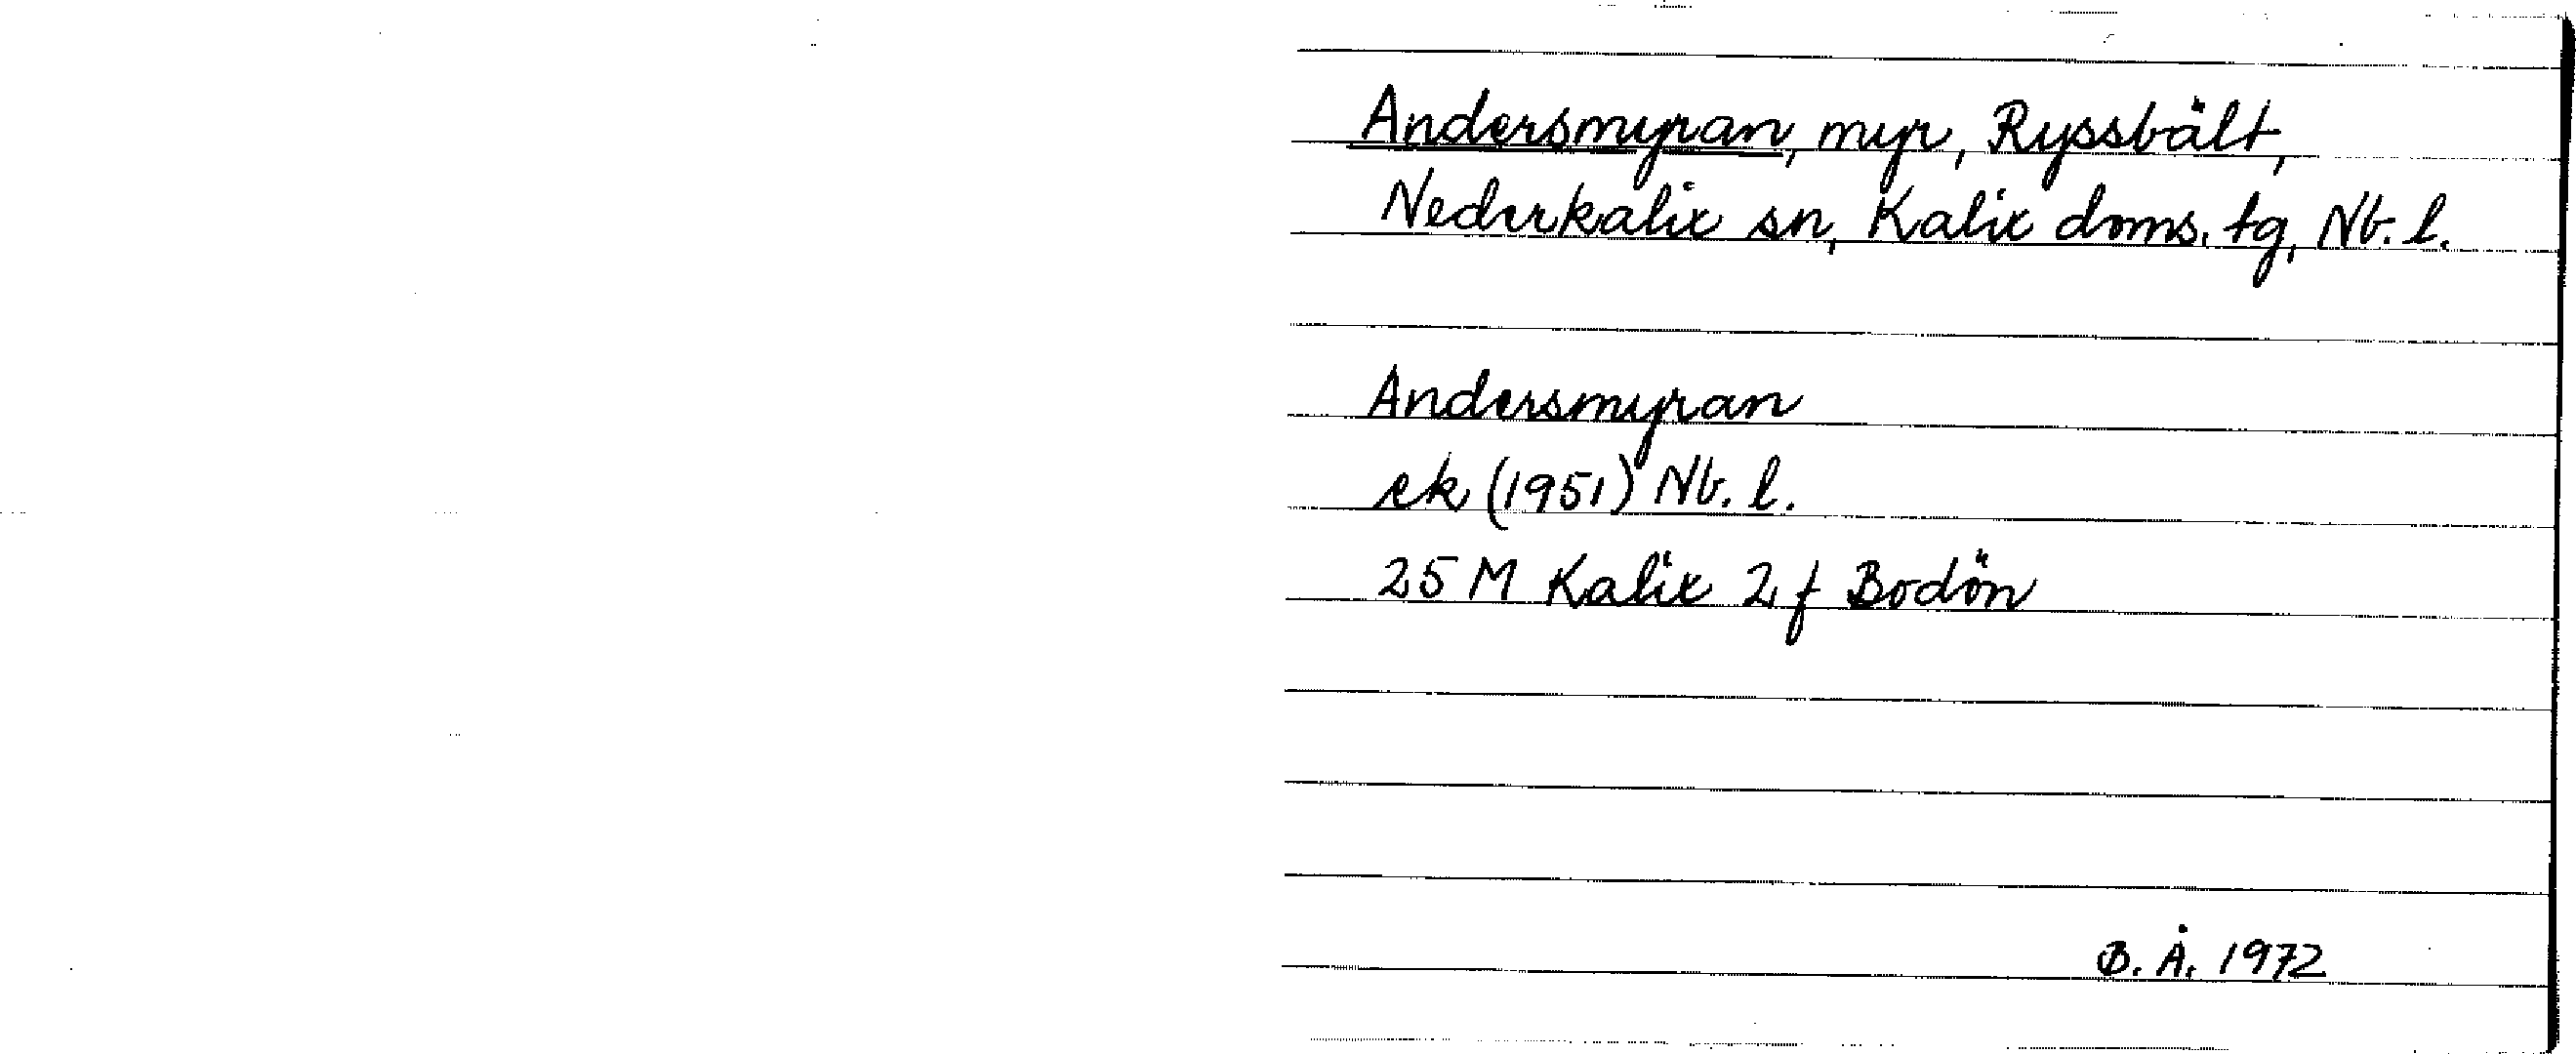 Andersmyran, myr, Ryssbält,
Nederkalix sn, Kalix doms. tg, Nb. l.
Andersmyran
ek (1951) Nb. l.
25 M Kalix 2 f Bodön
B. Å. 1972